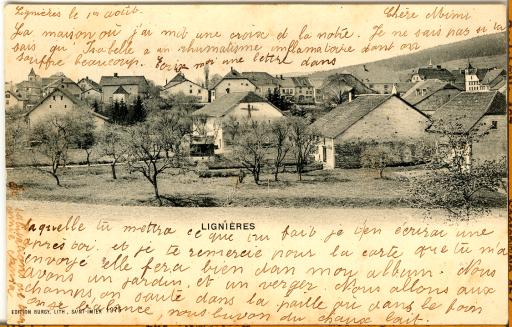 Lignières le 1er août.
Chère Mimi
La maison ou j'ai mit une croix et la notre. Je ne sais pas si tu
sais qu Isabelle a un rhumatisme inflamatoire dont on
souffre beaucoup. Ecris moi une lettre dans
LIGNIÈRES
laquelle tu mettra ce que tu fait je t'en écrirai une
après toi. et je te remercie pour la carte que tu m'a
envoyé elle fera bien dan mon album. Nous
avons un jardin et un verger. Nous allons aux
champs, on saute dans la paille ou dans le foin
nous buvon du chaux lait.
EDITION BURGY, LITH., SAINT-IMIER